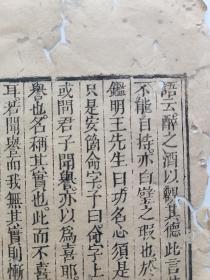 語云醉之酒以觀其德此言
不能自持亦白璧之瑕也於
鑑明王先生曰功名心須是
只是安箇命字子曰命字上
或問君子聞譽亦以為喜耶
譽也名稱其實也此而不喜
耳若聞譽而我無其實則慚